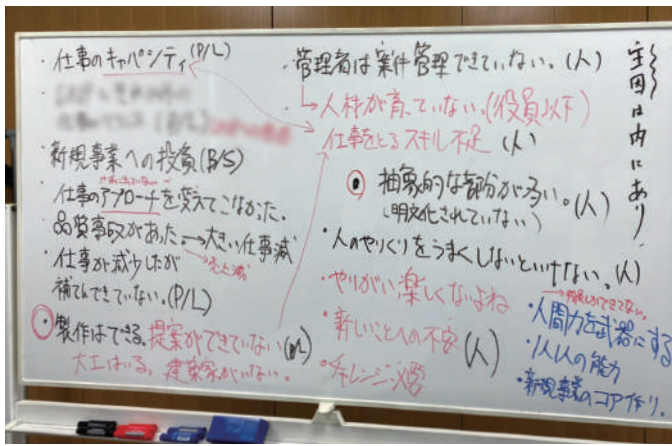 ・仕事のキャパシティ(P/L)
・新規事業への投資(B/S)
・仕事のアプローチを変えてこなかった。
・品質事故があった。→大きい仕事減
→売上減
・仕事が減少したが
補てんできていない。(P/L)
・製作はできる。提案ができていない
大工はいる。建築家がいない。
・管理者は案件管理できていない。(人)
→人材が育っていない。(役員以下)
仕事をとるスキル不足(人)
・抽象的な部分が多い。(人)
(明文化されていない)
・人のやりくりをうまくしないといけない。(人)
・やりがい楽しくないよね
・新しいことへの不安(人)
・チャレンジ
主因は内にあり
・人間力を武器にする
・1人1人の能力
・新規事業のコア作り。